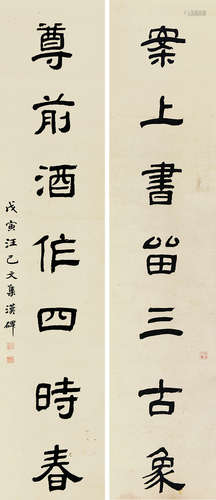 案上書留三古象
尊前酒作四時春
戊寅汪己文集漢碑